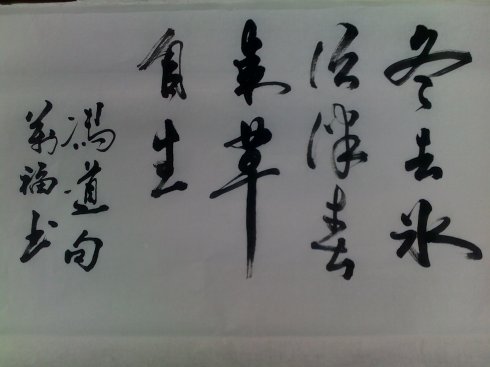 冬去冰
須泮春
來草
自生
馮道句
萬福书